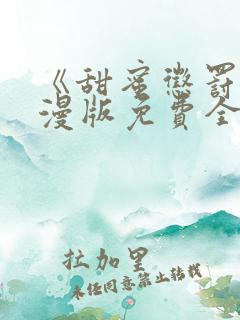 《甜蜜惩罚
漫版免费全
拉加里
未经同意禁止转载